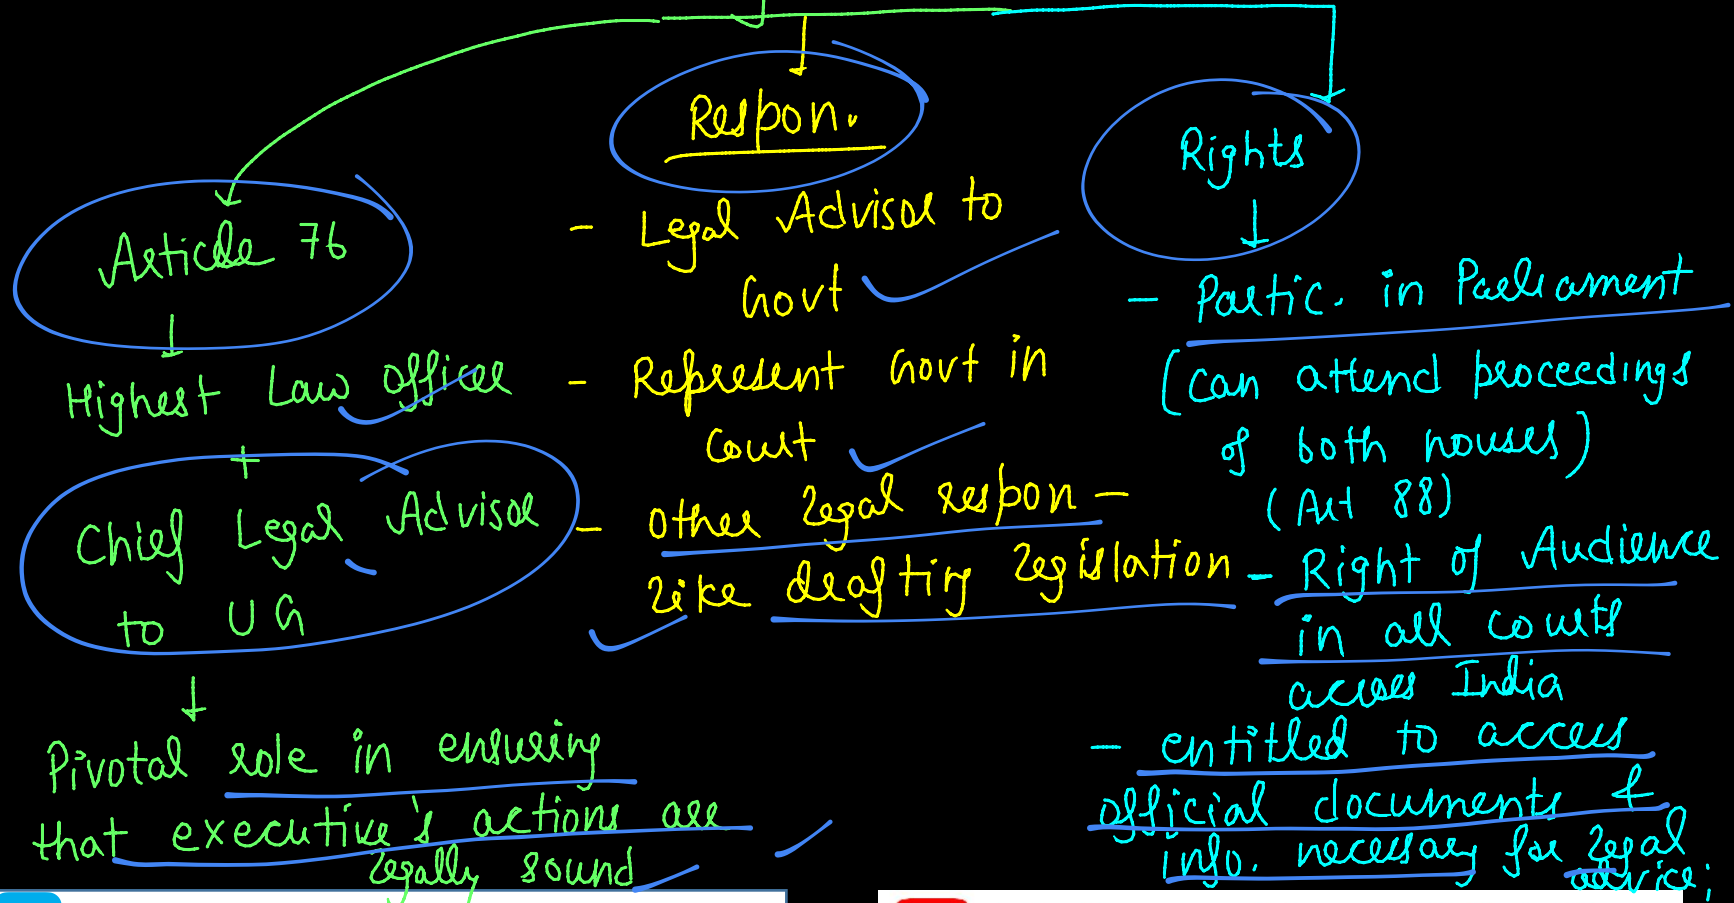 Article 76
Highest Law officer
+
Chief Legal Advisor
to UG
Pivotal role in ensuring
that executive's actions are
legally sound
Respon.
- Legal Advisor to
Govt
- Represent Govt in
Court
- other legal respon -
like drafting legislation
Rights
- Partic. in Parliament
(can attend proceedings
of both houses)
(Art 88)
- Right of Audience
in all courts
across India
- entitled to access
official documents &
info. necessary for legal
advice;